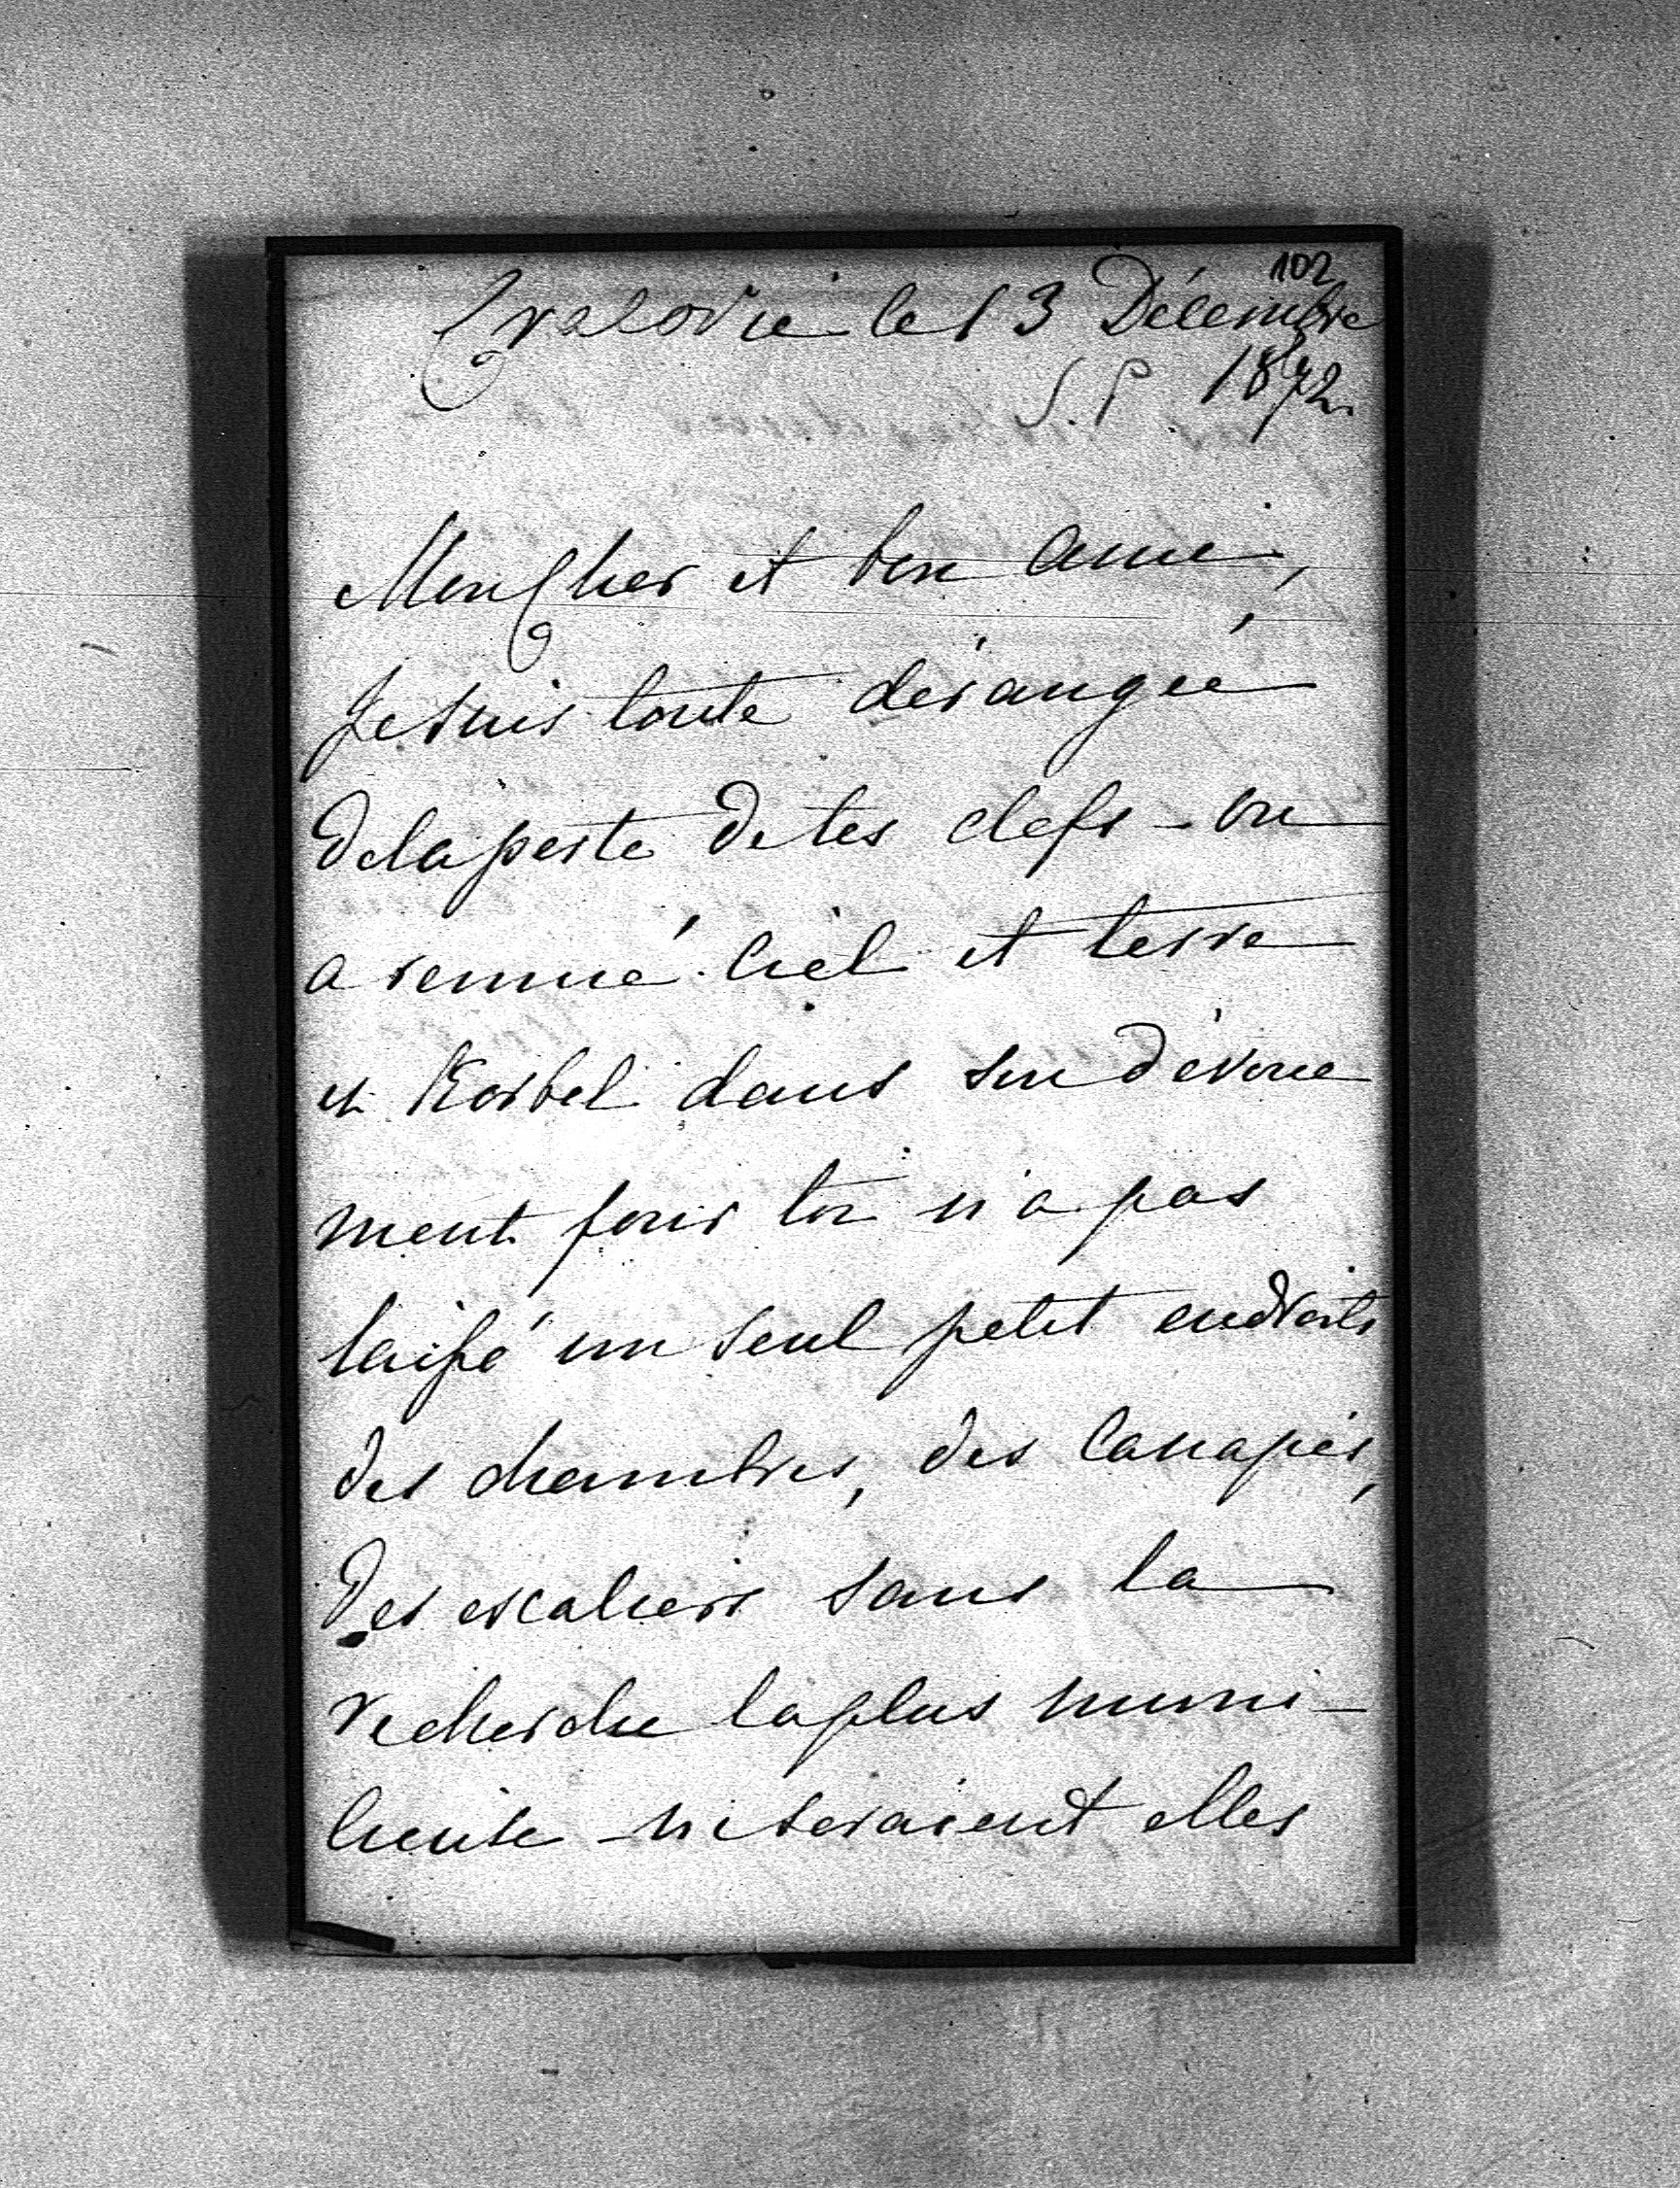 102
Cracovie le 13 Décembre
S. P. 1872.
Mon Cher et bon Ami,
Je suis toute dérangée
de la perte de tes clefs - on
a remué Ciel et terre
et Korbel dans son dévoue
ment pour toi n'a pas
laissé un seul petit endroits
des chambres, des Canapés,
des escaliers sans la
recherche la plus minu-
tieuse - ne seraient elles